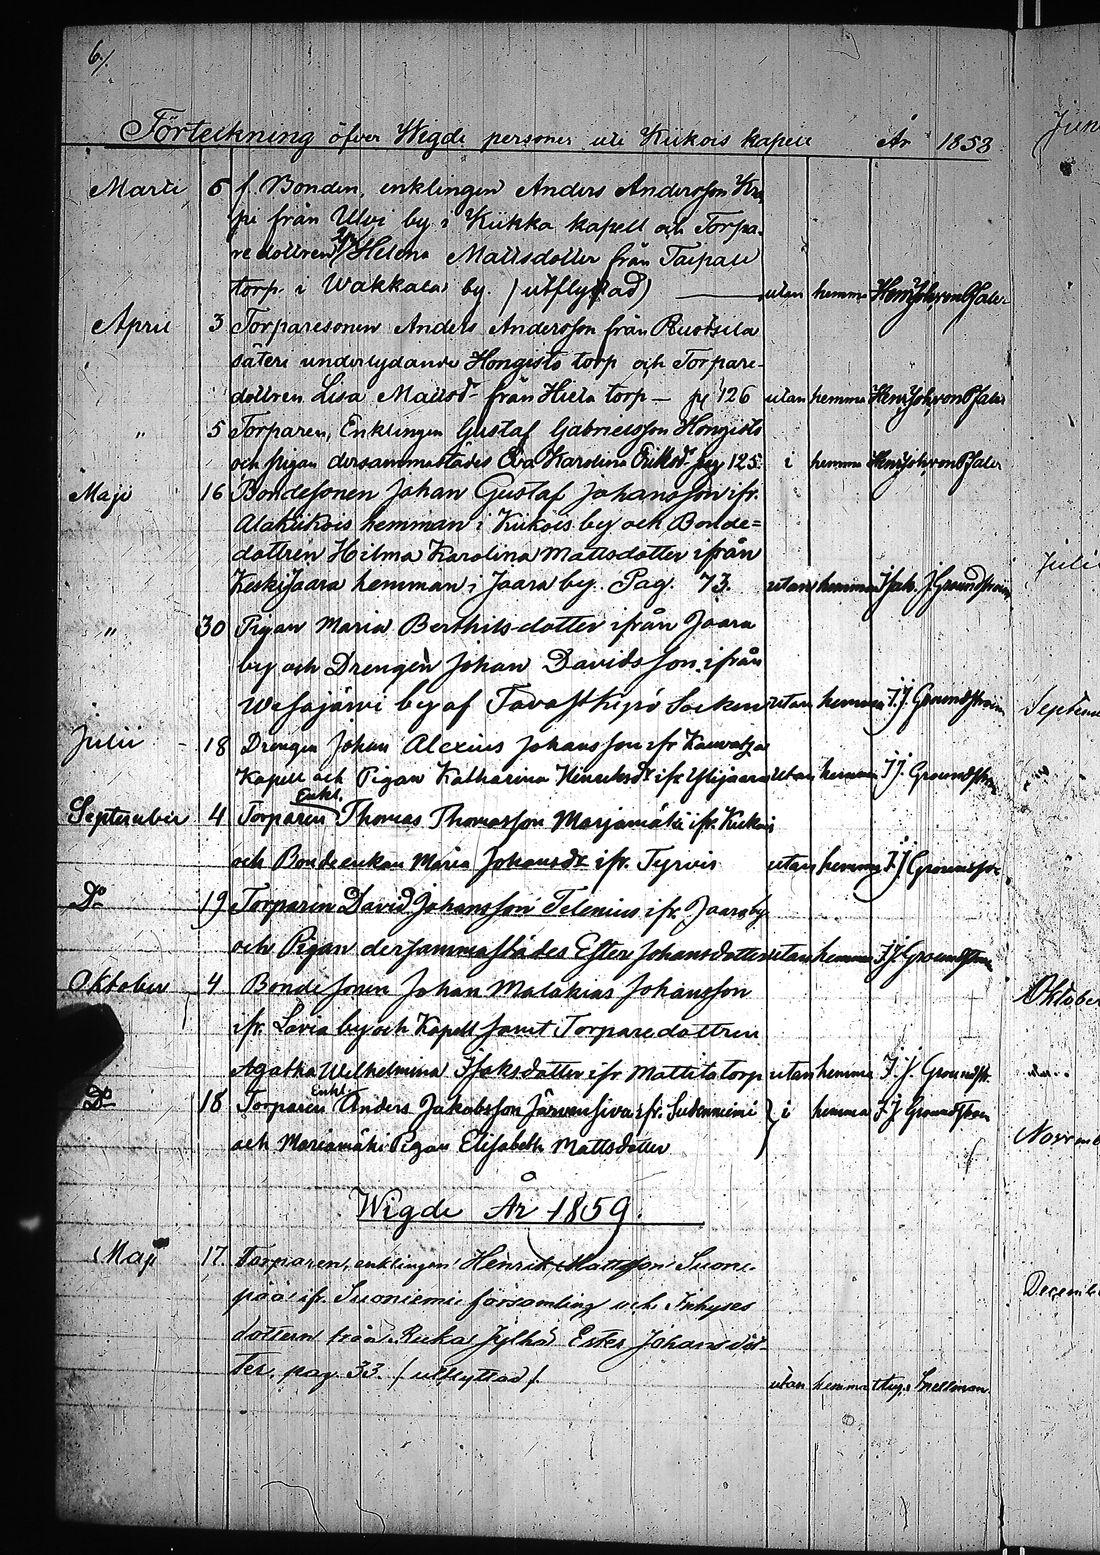 6/.
Förteckning öfver Wigde personer uti Kiikois kapell År 1858
Martii 5 f. Bonden, enklingen Anders Andersson Kru
pi från Ulvi by i Kiikka kapell och Torpa-
redottren Helena Mattsdotter från Taipale
torp i Wakkala by. (utflyttad) utan hemma
April 3 Torparesonen Anders Andersson från Ruotsila
säteri underlydande Hongisto torp och Torpare-
dottren Lisa Mattsdr från Hiela torp — pg 126 utan hemma
" 5 Torparen, Enklingen Gustaf Gabrielsson Hongisto
och pigan dersammastädes Eva Karolina Eriksdr pag 125. i hemma
Maji 16 Bondesonen Johan Gustaf Johansson ifr.
Alakiikois hemman i Kiikois by och Bonde=
dottren Hilma Karolina Mattsdotter ifrån
KeskiJaara hemman i Jaara by. Pag. 73. utan hemma Isak J. Grounstroem
" 30 Pigan Maria Berthils-dotter ifrån Jaara
by och Drengen Johan Davidsson ifrån
Wesajärvi by af Tavastkyrö Socken utan hemma I. J. Grounstroem
Julii 18 Drengen Johan Alexius Johansson ifr Kauvatsa
Kapell och Pigan Katharina Hinriksdr ifr Ylijaara utan hemma I. J. Grounstroem
Enkl.
September 4 Torparen Thomas Thomasson Marjamäki ifr. Kiikois
och Bondeenkan Maria Johansdr ifr. Tyrvis utan hemma I. J. Grounstr.
Do 19 Torparen David Johansson Telenius ifr Jaaraby
och Pigan dersammastädes Ester Johansdotter utan hemma I. J. Grounstroem
Oktober 4 Bondesonen Johan Malakias Johansson
ifr. Lavia by och Kapell samt Torparedottren
Agatha Wilhelmina Isaksdotter ifr Mattila torp utan hemma I. J. Grounstr.
Enkl.
Do 18 Torparen Anders Jakobsson Järvensivu ifr. Sudenniemi } i hemma I. J. Grounstroem
och Mariamäki Pigan Elisabeth Mattsdotter
Wigde År 1859.
Maji 17. Torparen, enklingen Henrik Mattsson Suoni-
pää ifr. Suoniemi församling och Inhyses
dottern från Kuka Jylhä Ester Johansdot-
ter, pag. 33. (utflyttad). utan hemma Aug. Snellman.
Juni
Julii
Septem
Oktober
Novem
Decemb